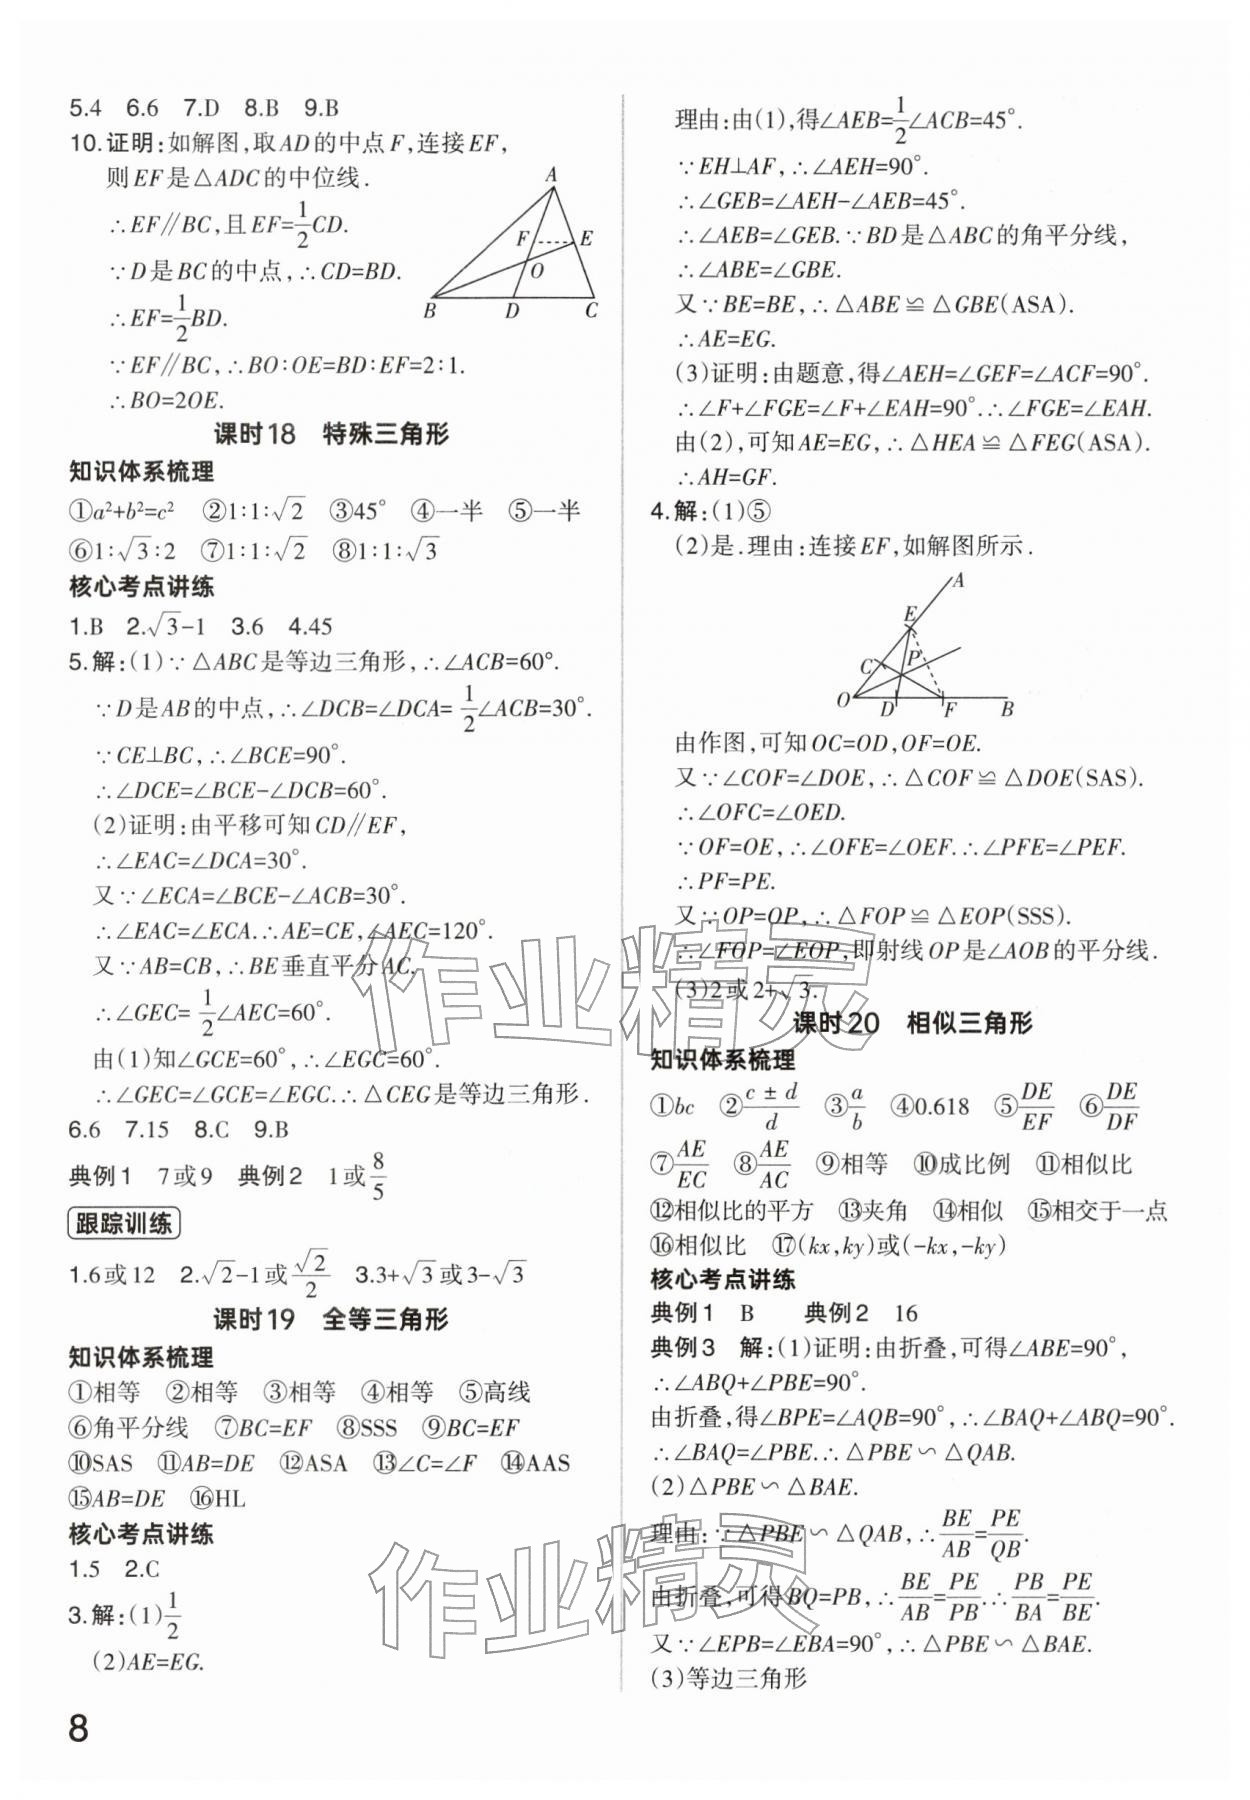 5.4　6.6　7.D　8.B　9.B
10.证明:如解图,取AD的中点F,连接EF,
则EF是△ADC的中位线.
∴EF∥BC,且EF=1/2CD.
∵D是BC的中点,∴CD=BD.
∴EF=1/2BD.
∵EF∥BC,∴BO∶OE=BD∶EF=2∶1.
∴BO=2OE.
A
F
E
O
B
D
C
课时18　特殊三角形
知识体系梳理
①a²+b²=c²　②1∶1∶√2　③45°　④一半　⑤一半
⑥1∶√3∶2　⑦1∶1∶√2　⑧1∶1∶√3
核心考点讲练
1.B　2.√3-1　3.6　4.45
5.解:(1)∵△ABC是等边三角形,∴∠ACB=60°.
∵D是AB的中点,∴∠DCB=∠DCA=1/2∠ACB=30°.
∵CE⊥BC,∴∠BCE=90°.
∴∠DCE=∠BCE-∠DCB=60°.
(2)证明:由平移可知CD∥EF,
∴∠EAC=∠DCA=30°.
又∵∠ECA=∠BCE-∠ACB=30°.
∴∠EAC=∠ECA.∴AE=CE,∠AEC=120°.
又∵AB=CB,∴BE垂直平分AC.
∴∠GEC=1/2∠AEC=60°.
由(1)知∠GCE=60°,∴∠EGC=60°.
∴∠GEC=∠GCE=∠EGC.∴△CEG是等边三角形.
6.6　7.15　8.C　9.B
典例1　7或9　典例2　1或8/5
跟踪训练
1.6或12　2.√2-1或√2/2　3.3+√3或3-√3
课时19　全等三角形
知识体系梳理
①相等　②相等　③相等　④相等　⑤高线
⑥角平分线　⑦BC=EF　⑧SSS　⑨BC=EF
⑩SAS　⑪AB=DE　⑫ASA　⑬∠C=∠F　⑭AAS
⑮AB=DE　⑯HL
核心考点讲练
1.5　2.C
3.解:(1)1/2
(2)AE=EG.
理由:由(1),得∠AEB=1/2∠ACB=45°.
∵EH⊥AF,∴∠AEH=90°.
∴∠GEB=∠AEH-∠AEB=45°.
∴∠AEB=∠GEB.∵BD是△ABC的角平分线,
∴∠ABE=∠GBE.
又∵BE=BE,∴△ABE≌△GBE(ASA).
∴AE=EG.
(3)证明:由题意,得∠AEH=∠GEF=∠ACF=90°.
∴∠F+∠FGE=∠F+∠EAH=90°.∴∠FGE=∠EAH.
由(2),可知AE=EG,∴△HEA≌△FEG(ASA).
∴AH=GF.
4.解:(1)⑤
(2)是.理由:连接EF,如解图所示.
A
E
C
P
O
D
F
B
由作图,可知OC=OD,OF=OE.
又∵∠COF=∠DOE,∴△COF≌△DOE(SAS).
∴∠OFC=∠OED.
∵OF=OE,∴∠OFE=∠OEF.∴∠PFE=∠PEF.
∴PF=PE.
又∵OP=OP,∴△FOP≌△EOP(SSS).
∴∠FOP=∠EOP,即射线OP是∠AOB的平分线.
(3)2或2+√3.
课时20　相似三角形
知识体系梳理
①bc　②(c±d)/d　③a/b　④0.618　⑤DE/EF　⑥DE/DF
⑦AE/EC　⑧AE/AC　⑨相等　⑩成比例　⑪相似比
⑫相似比的平方　⑬夹角　⑭相似　⑮相交于一点
⑯相似比　⑰(kx,ky)或(-kx,-ky)
核心考点讲练
典例1　B　典例2　16
典例3　解:(1)证明:由折叠,可得∠ABE=90°,
∴∠ABQ+∠PBE=90°.
由折叠,得∠BPE=∠AQB=90°,∴∠BAQ+∠ABQ=90°.
∴∠BAQ=∠PBE.∴△PBE∽△QAB.
(2)△PBE∽△BAE.
理由:∵△PBE∽△QAB,∴BE/AB=PE/QB.
由折叠,可得BQ=PB,∴BE/AB=PE/PB.∴PB/BA=PE/BE.
又∵∠EPB=∠EBA=90°,∴△PBE∽△BAE.
(3)等边三角形
8
作业精灵
作业精灵